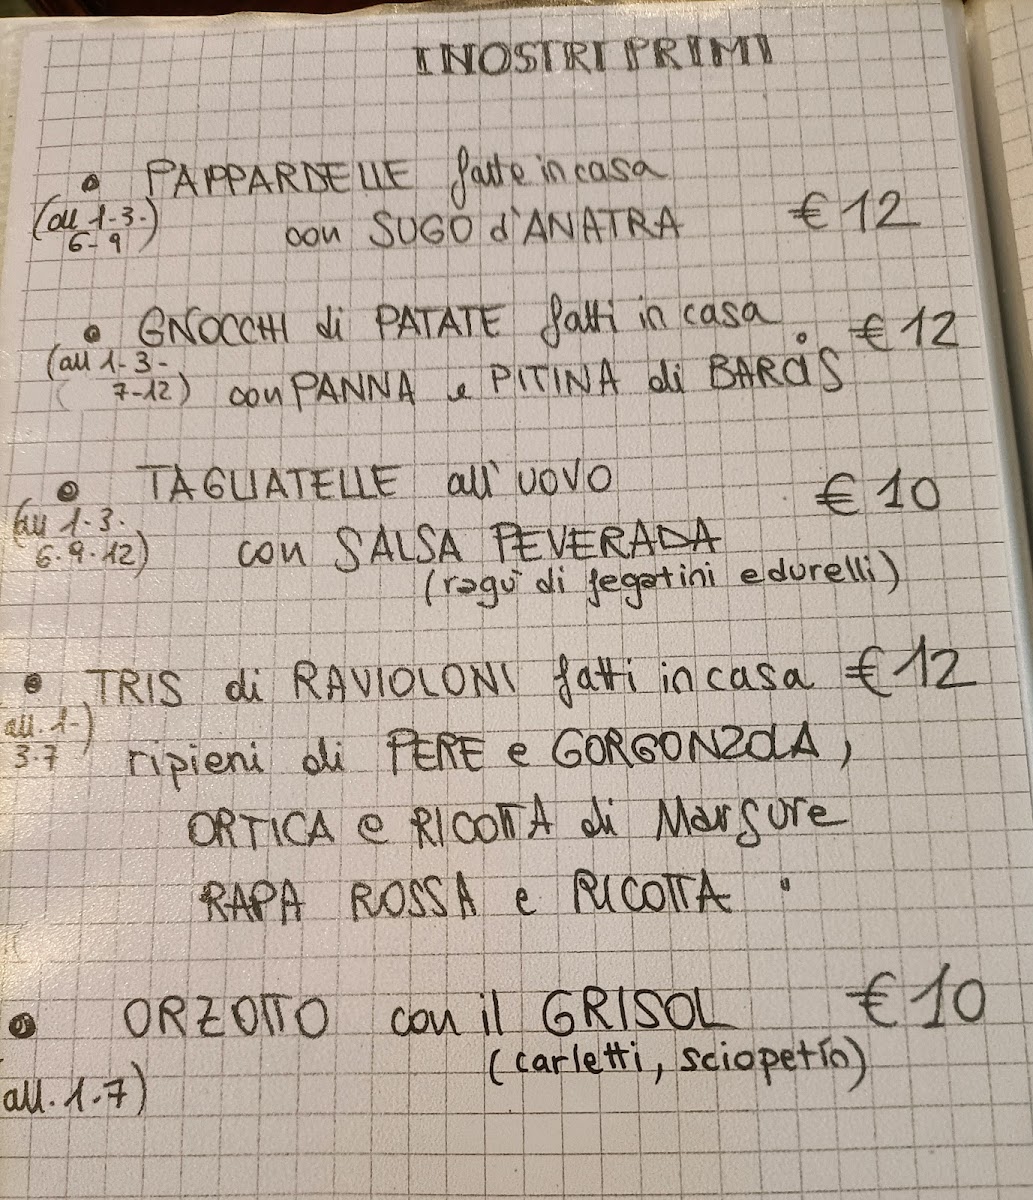 I NOSTRI PRIMI
• PAPPARDELLE fatte in casa
(all 1-3-
6-9)
con SUGO d'ANATRA € 12
• GNOCCHI di PATATE fatti in casa € 12
(all 1-3-
7-12) con PANNA e PITINA di BARCIS
• TAGLIATELLE all'UOVO € 10
(all 1-3.
6.9.12) con SALSA PEVERADA
(ragù di fegatini e durelli)
• TRIS di RAVIOLONI fatti in casa € 12
all. 1-)
3.7 ripieni di PERE e GORGONZOLA,
ORTICA e RICOTTA di Marsure
RAPA ROSSA e RICOTTA •
• ORZOTTO con il GRISOL € 10
(carletti, sciopetin)
all. 1.7)